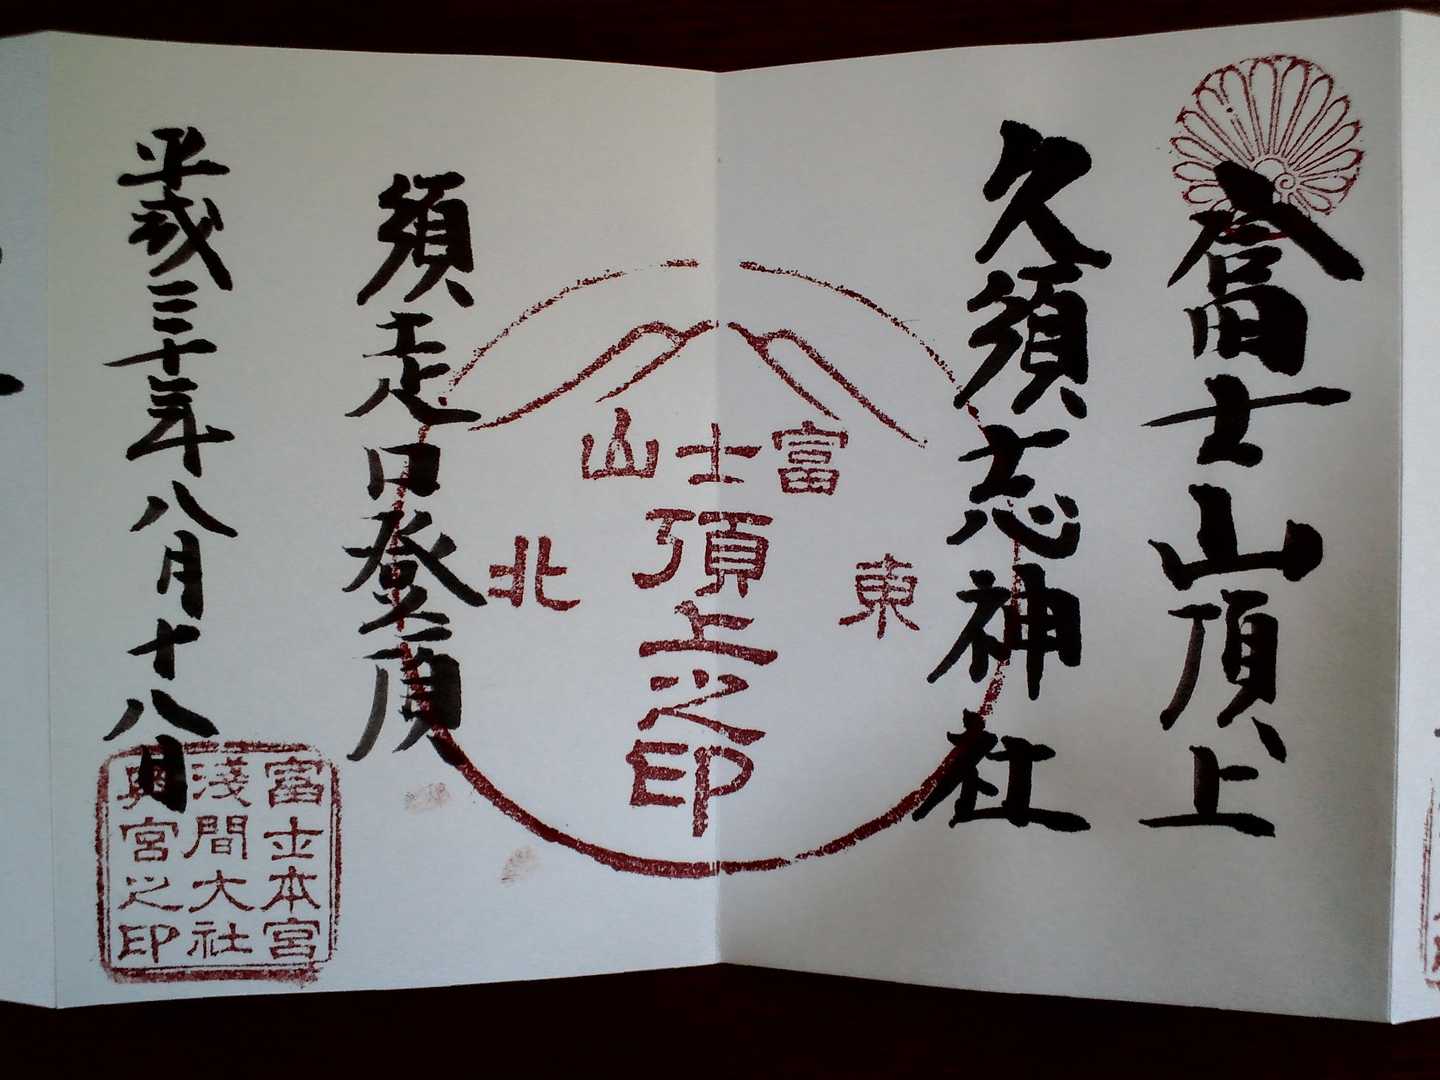 富士山頂上
久須志神社
富士山
頂上之印
東
北
須走口登頂
平成三十年八月十八日
富士本宮
淺間大社
奥宮之印